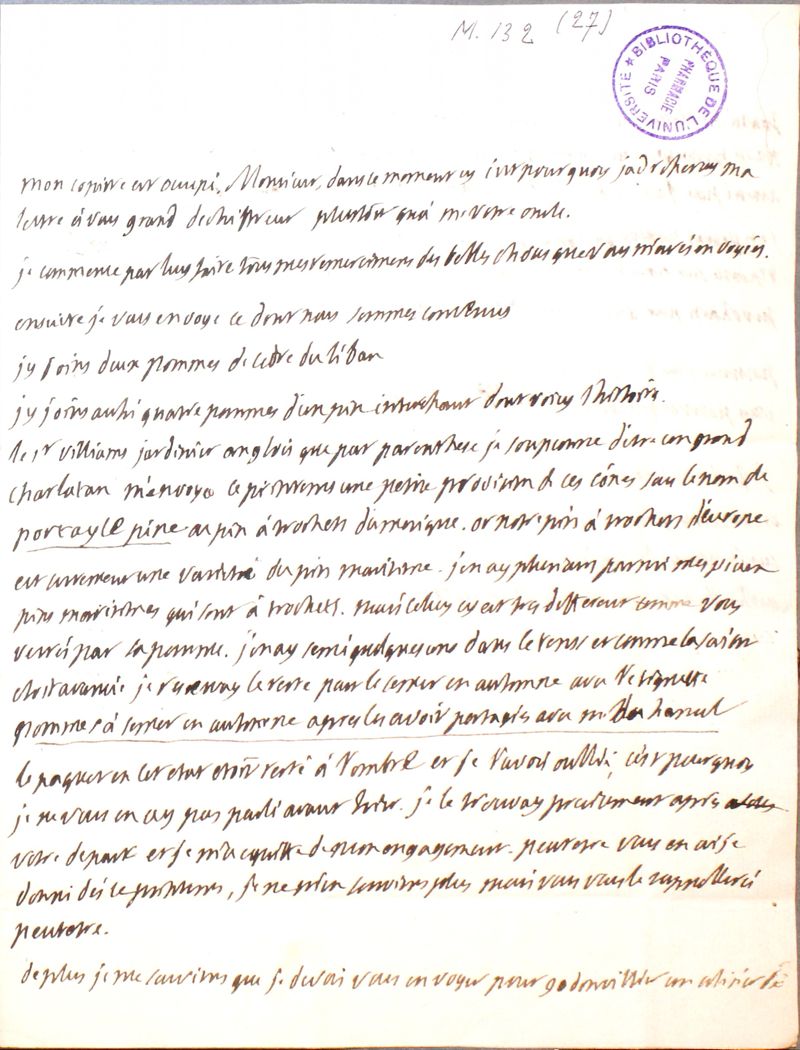 M. 132 (27)
BIBLIOTHÈQUE DE L'UNIVERSITÉ ★ PHARMACIE PARIS
mon copiste est occupé, Monsieur, dans ce moment cy c'est pourquoy j'adresse ma
lettre à vous grand dechiffreur plustost qu'a mr votre oncle.
je commence par luy faire tous mes remercimens des belles choses que vous m'avés envoyées.
ensuitte je vous envoye ce dont nous sommes convenus
j'y joins deux pommes de cedre du liban
j'y joins aussi quatre pommes d'un pin interessant dont voicy l'histoire.
le sr villiams jardinier anglois que par parenthese je soupconne d'etre un grand
charlatan m'envoya ce printems une petite provision de ces cônes sous le nom de
pine ou pin à trochets d'amerique. or notre pin à trochets d'europe
est surement une varieté du pin maritime. j'en ay plusieurs parmi mes vieux
pins maritimes qui sont à trochets. mais celuy cy est tres different comme vous
verrés par sa pomme. j'en ay semé quelques uns dans le tems et comme la saison
etoit avancée je reservay le reste pour le semer en automne avec l'etiquette
pommes à semer en automne apres les avoir partagées avec mr
le paquet en cet etat etoit resté à l'ombre et je l'avois oublié, c'est pourquoy
je ne vous en ay pas parlé avant hier. je le trouvay precisement après
votre depart et je m'acquitte de mon engagement. peutetre vous en ai je
donné dès ce printems, je ne m'en souviens plus mais vous vous le rappellerés
peutetre.
de plus je me souviens que je devois vous envoyer pour un alisier de